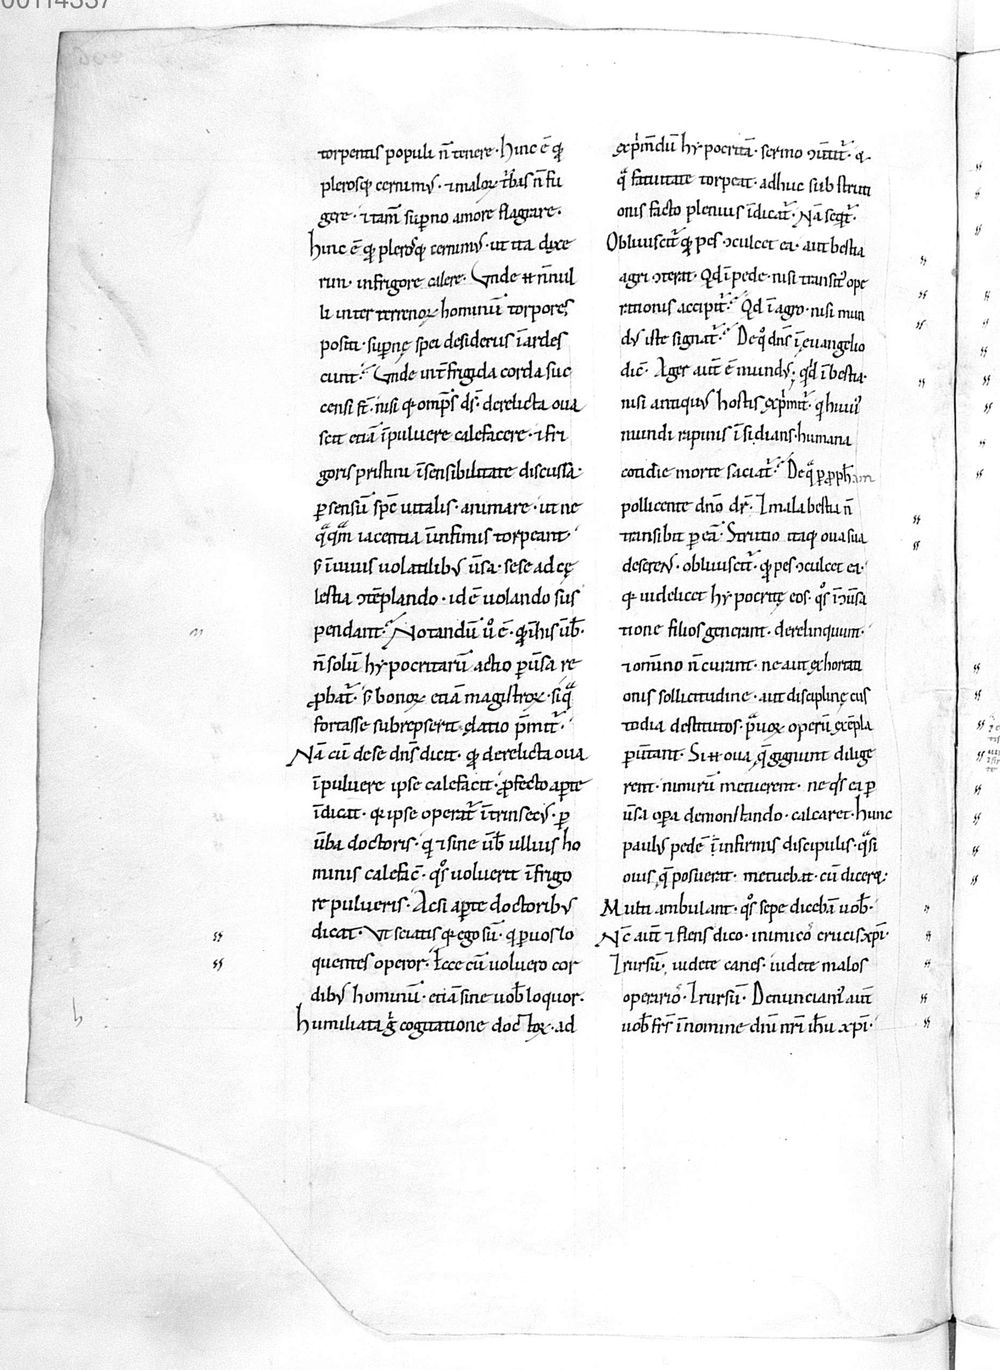 torpentis populi n̄ tenere · hinc ē qđ
plerosq; cernimꝰ · ⁊ maloꝝ t̓bas n̄ fu
gere · ⁊ tam̄ suꝑno amore flagrare ·
hinc ē qđ plerosq; cernimꝰ · ut ita dixe
rim · in frigore calere · Unde ⁊ n̄nul
li inter terrenoꝝ hominū torpores
positi · suꝑnę spei desideriis īardes
cunt · Unde unt̄ frigida corda suc
censi st̄ · nisi q omp̄s ds̄ · derelicta oua
scit etiā ī puluere calefacere · ⁊ fri
goris pristini īsensibilitate discussa ·
ꝑ sensū spc̄ uitalis · animare · ut ne
q̄q̄m iacentia ī infimis torpeant ·
s̄ ī uiuis uolatilibꝰ ūsa · sese ad cę
lestia ↄtēplando · id ē uolando sus
pendant · Notandū u̓o ē · qđ ī his ūb̄ ·
n̄ solū hypocritarū actio ꝑūsa re
ꝓbat̄ · s̄ bonoꝝ etiā magistroꝝ · siq̄
fortasse subrepserit elatio p̄mit̄ ·
Nā cū de se dn̄s dicit · qđ derelicta oua
ī puluere ipse calefacit · ꝓfecto aꝑte
īdicat · q ipse operat̄ ītrinsecꝰ · ꝑ
ūba doctoris · qi ⁊ sine ūb̄ ullius ho
minis calefac̄ · q̊s uoluerit ī frigo
re pulueris · Acsi aꝑte doctoribꝰ
dicat · Vt sciatis q ego sū · q ꝑ uos lo
quentes operor · Ecce cū uoluero cor
dibꝰ hominū · etiā sine uob̄ loquor ·
humiliata g̊ cogitatione doctoꝝ · ad
exp̄mēdū hypocritā · sermo ↄūtit̄ · q
q̄ fatuitate torpeat · adhuc sub struti
onis facto plenius īdicat̄ · Nā seqt̄ ·
Obliuiscit̄ qđ pes ↄculcet ea · aut bestia
agri ↄterat · Qđ ī pede · nisi transitꝰ ope
rationis accipit̄ · Qđ ī agro · nisi mun
dꝰ iste signat̄ · De q̊ dn̄s ī euangelio
dic̄ · Ager aut̄ ē mundꝰ; qđ ī bestia ·
nisi antiquꝰ hostis exp̄mit̄ · q huiꝰ
mundi rapinis īsidians · humana
cotidie morte saciat̄ · De q̄ ꝑ ꝓph̄am
pollicente dn̄o dr̄ · I mala bestia n̄
transibit ꝑ eā · Strutio itaq; oua sua
deserens · obliuiscit̄ · qđ pes ↄculcet ea ·
q uidelicet hypocritę eos · q̊s ī ↄūsa
tione filios generant · derelinquunt ·
⁊ om̄ino n̄ curant · ne aut exhortati
onis sollicitudine · aut disciplinę cus
todia destitutos · p̄uoꝝ operū exēpla
ꝑūtant · Si ⁊ oua q̄ gignunt dilige
rent · nimirū metuerent · ne q̓s ea ꝑ
ūsa oꝑa demonstrando · calcaret · hunc
paulꝰ pedē ī infirmis discipulis · q̄si
ouis q̄ posuerat · metuebat · cū diceret ·
Multi ambulant · q̊s sepe dicebā uob̄ ·
Nc̄ aut̄ ⁊ flens dico · inimicos crucis xpi ·
Irursū · uidete canes · uidete malos
operarios · Irursū · Denunciamꝰ aut̄
uob̄ frs̄ ī nomine dn̄i nr̄i ih̄u xpi ·